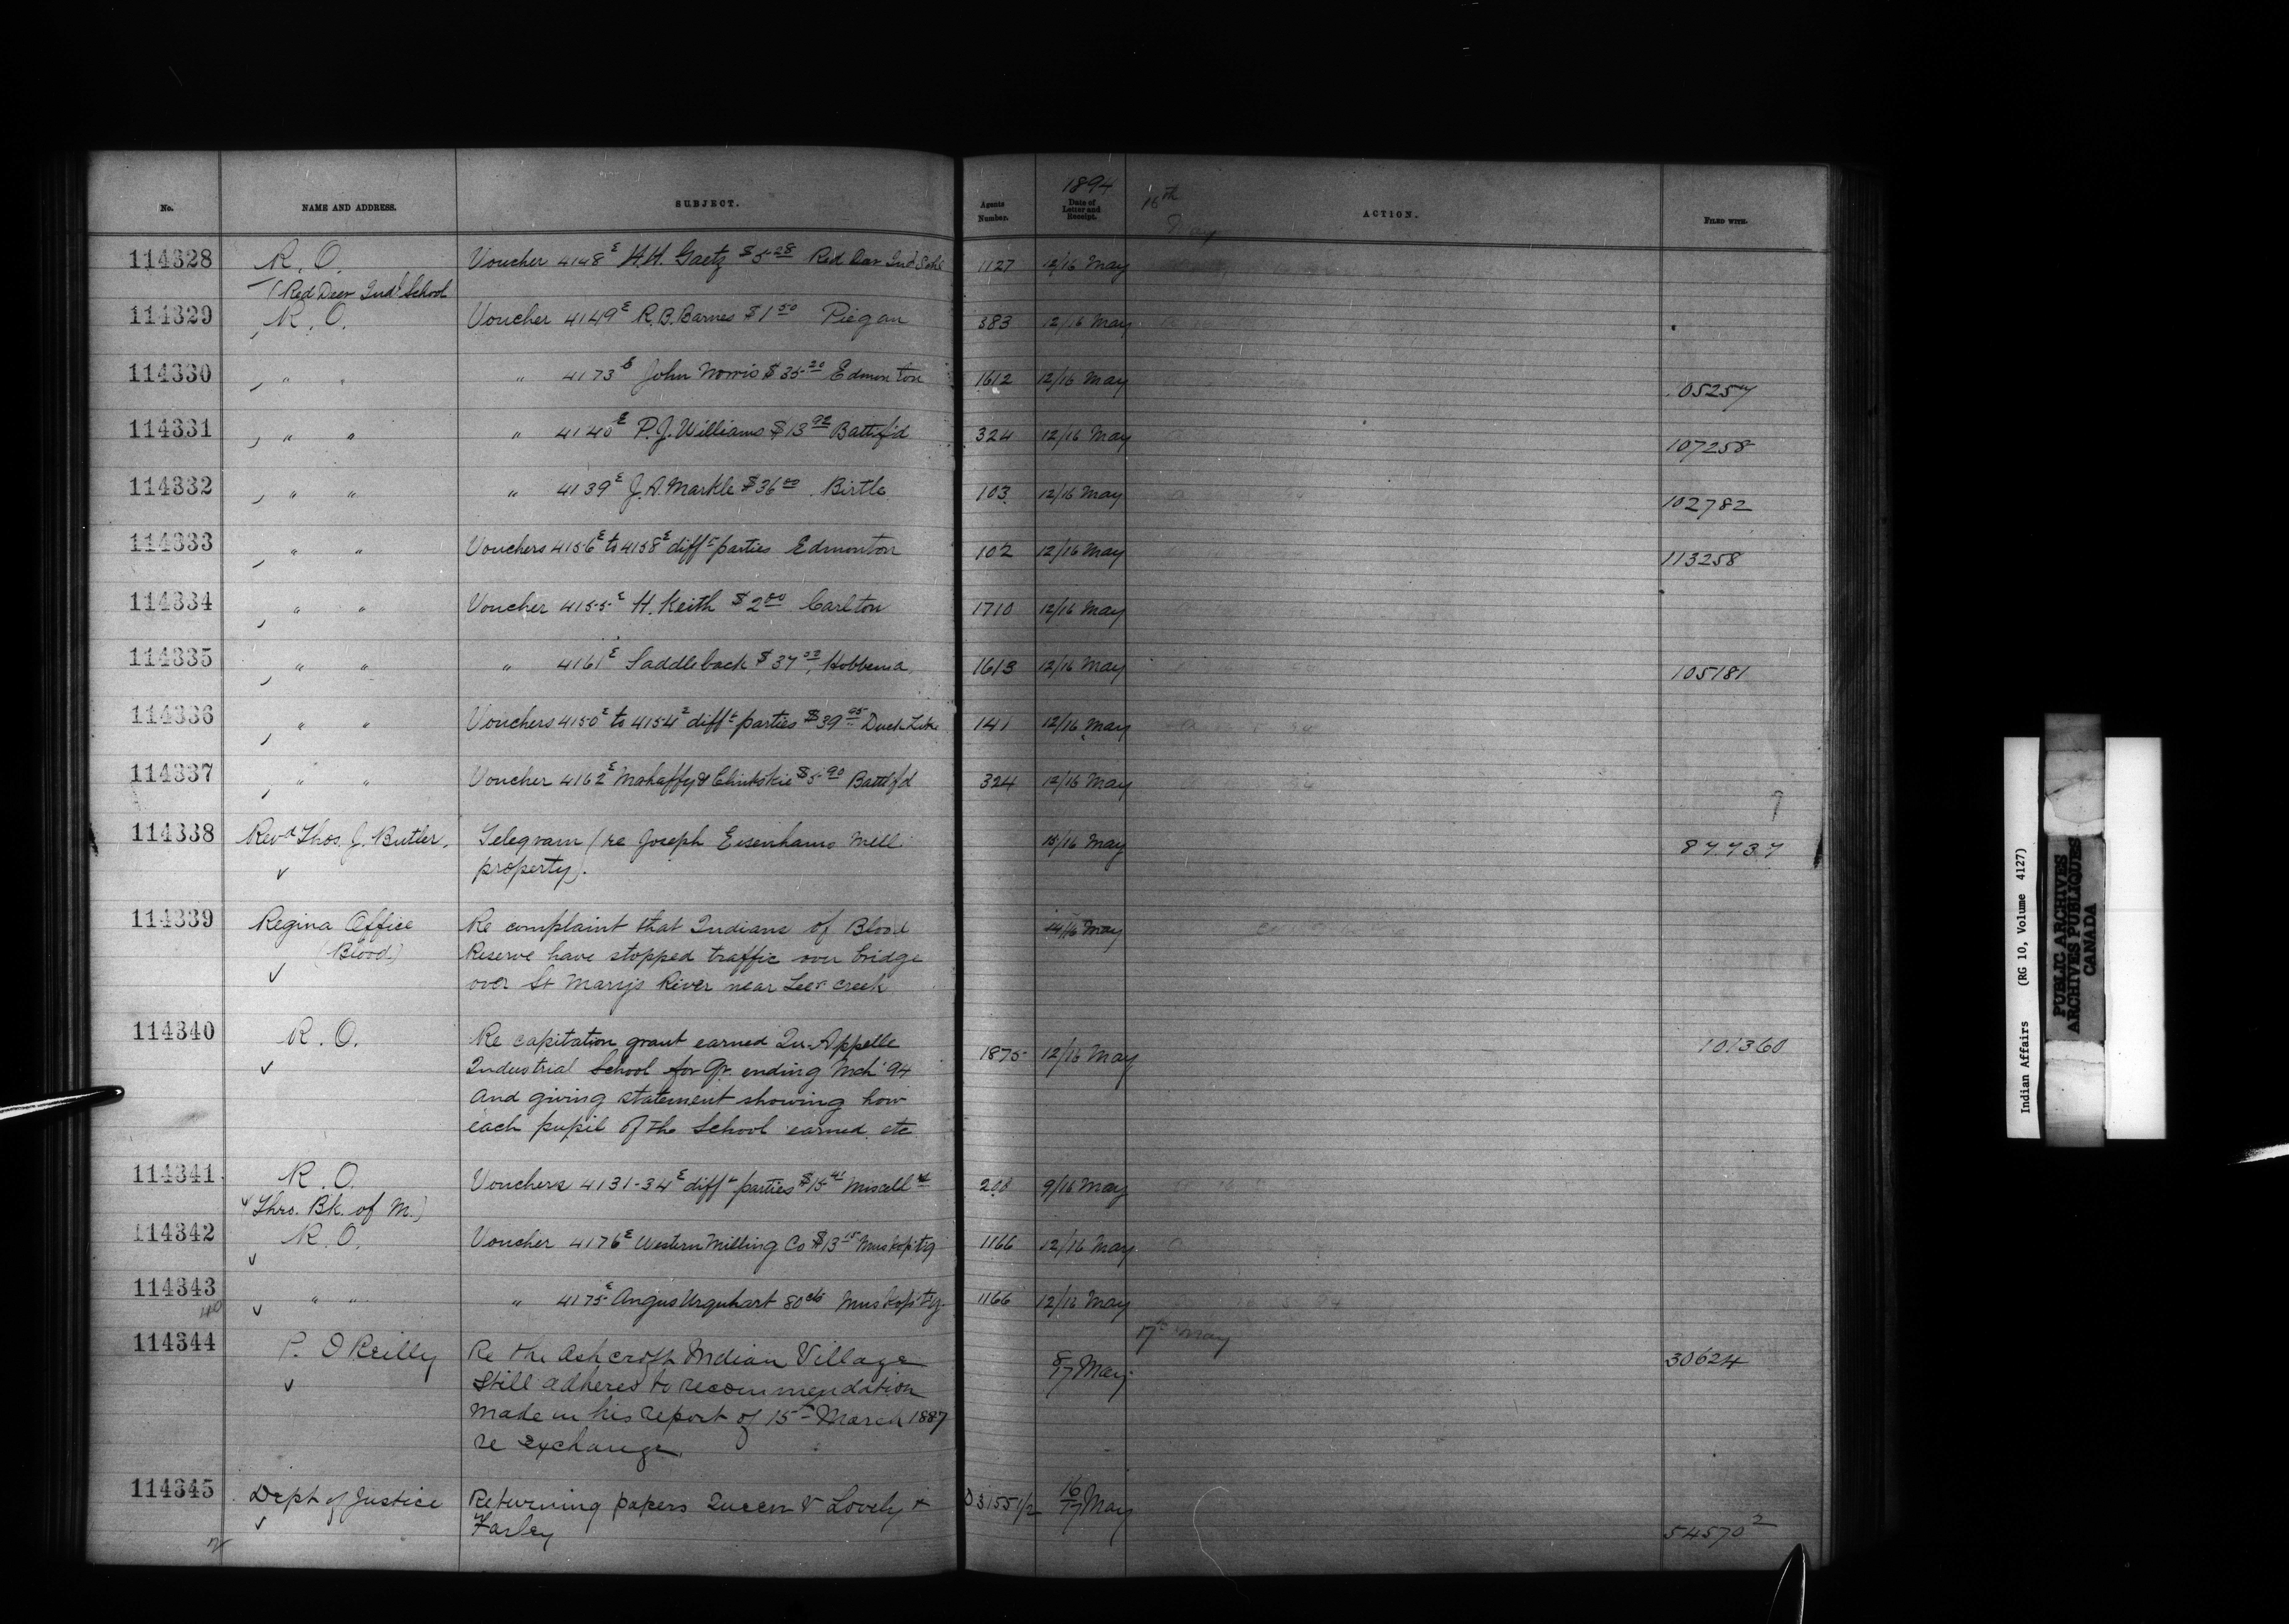 No. NAME AND ADDRESS. SUBJECT. Agents Number. 1894 Date of Letter and Receipt. 16th May ACTION. FILED WITH.
114328 R. O. Voucher 4148E H.H. Gaetz $5.28 Red Deer Ind Schl 1127 12/16 May
(Red Deer Indl School
114329 R. O. Voucher 4149E R.B. Barnes $1.50 Piegan 383 12/16 May
114330 " " " 4173E John Norris $35.20 Edmonton 1612 12/16 May 105257
114331 " " " 4140E P.J. Williams $13.92 Battlf'd 324 12/16 May 107258
114332 " " " 4139E J.A. Markle $36.00 Birtle 103 12/16 May 102782
114333 " " Vouchers 4156E to 4158E difft parties Edmonton 102 12/16 May 113258
114334 " " Voucher 4155E H. Keith $2.00 Carlton 1710 12/16 May
114335 " " " 4161E Saddleback $37 Hobbema 1613 12/16 May 105181
114336 " " Vouchers 4150E to 4154E difft parties $39.95 Duck Lke 141 12/16 May
114337 " " Voucher 4162E Mahaffy & Clinkskie $5.90 Battlf'd 324 12/16 May
114338 Revd Thos. J. Butler. Telegram (re Joseph Eisenhams Mill 15/16 May 87.737
property).
114339 Regina Office Re complaint that Indians of Blood 14/16 May
(Blood) Reserve have stopped traffic over bridge
over St Marys River near Lees creek
114340 R. O. Re capitation grant earned Qu-Appelle 1875 12/16 May 101360
Industrial School for Qr. ending Mch '94
and giving statement showing how
each pupil of the School earned etc
114341 R. O. Vouchers 4131-34E difft parties $15.41 Miscell 208 9/16 May
Thro. Bk. of M.)
114342 R. O. Voucher 4176E Western Milling Co $13.15 Muskop'tg 1166 12/16 May
114343 " " " 4175E Angus Urquhart 80cts Muskop'tg. 1166 12/16 May
17th May
114344 P. O Reilly Re the Ashcroft Indian Village 8/17 May 30624
Still adheres to recommendation
made in his report of 15th March 1887
re exchange
114345 Dept of Justice Returning papers Queen v Lovely & 16/17 May 54570 2
Farley
Indian Affairs (RG 10, Volume 4127)
PUBLIC ARCHIVES
ARCHIVES PUBLIQUES
CANADA